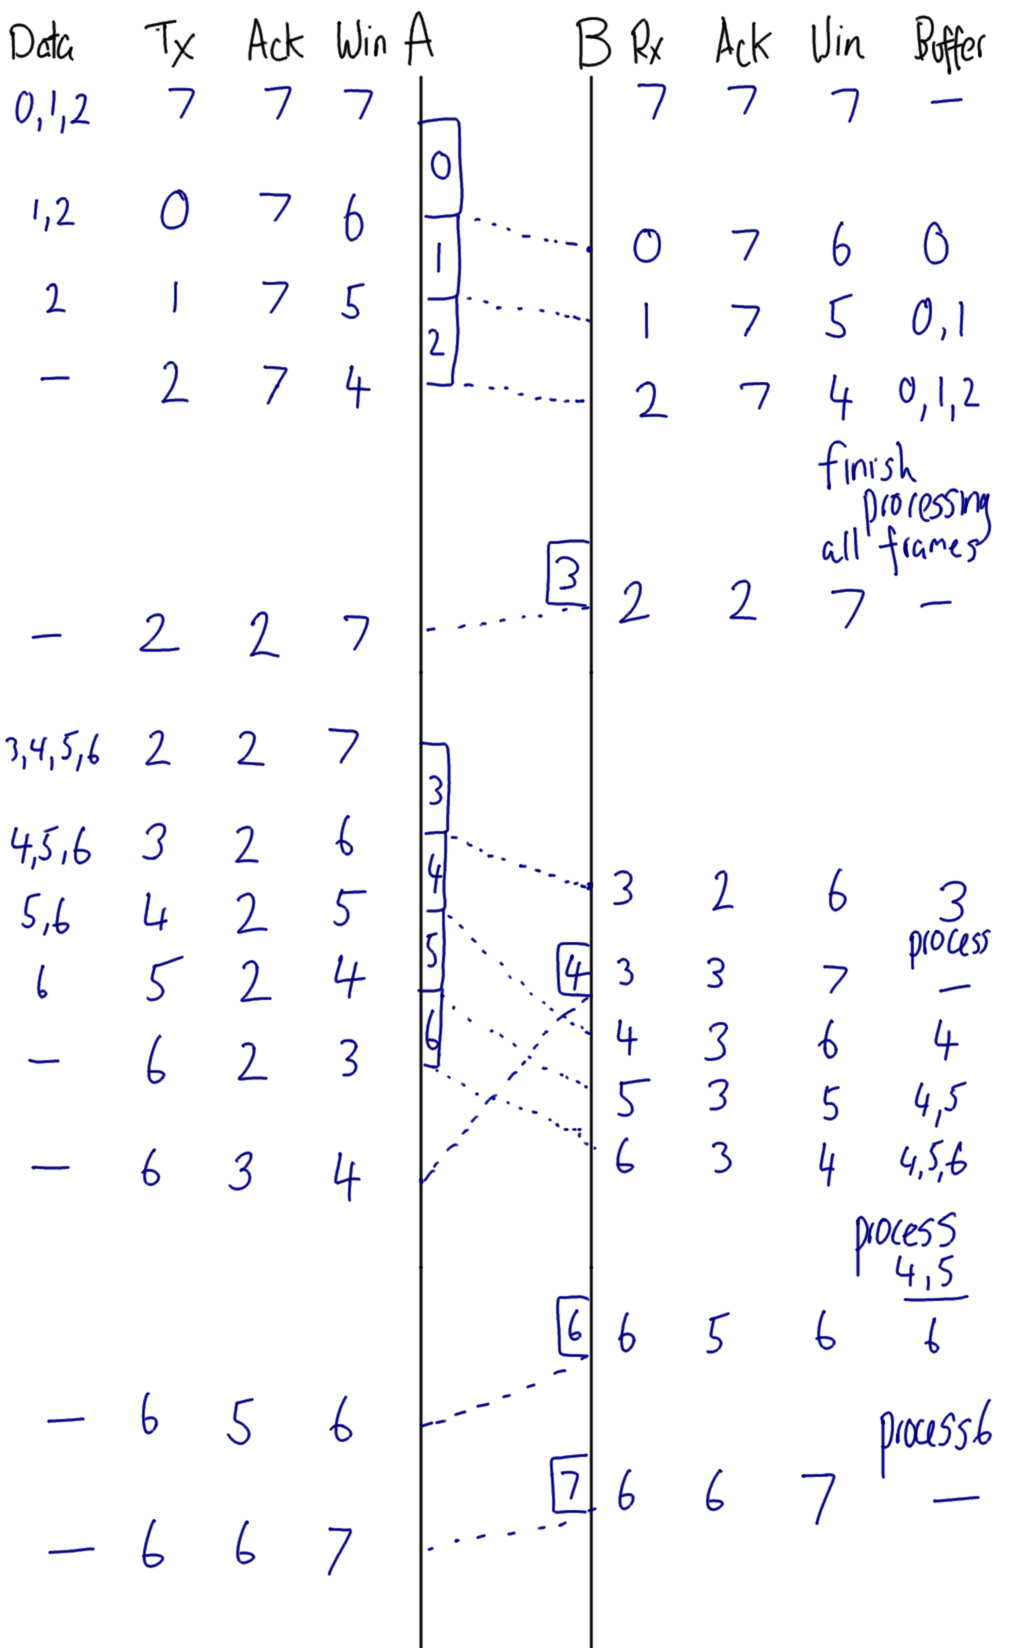 Data Tx Ack Win A B Rx Ack Win Buffer
0,1,2 7 7 7 7 7 7 –
0
1,2 0 7 6 0 7 6 0
1
2 1 7 5 1 7 5 0,1
2
– 2 7 4 2 7 4 0,1,2
finish
processing
all frames
3
2 2 7 –
– 2 2 7
3,4,5,6 2 2 7
3
4,5,6 3 2 6
4
3 2 6 3
5,6 4 2 5
process
5
4 3 3 7 –
6 5 2 4
6
4 3 6 4
– 6 2 3
5 3 5 4,5
6 3 4 4,5,6
– 6 3 4
process
4,5
6 6 5 6 6
– 6 5 6
process 6
7 6 6 7 –
– 6 6 7